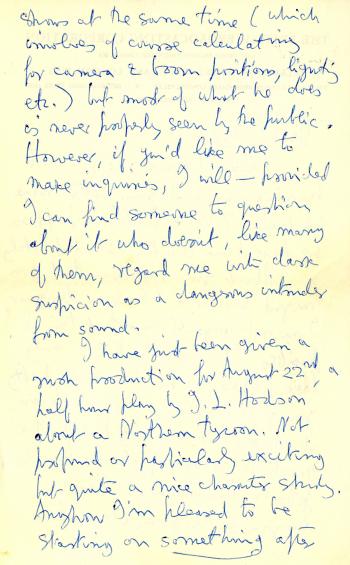 shows at the same time (which
involves of course calculating
for camera & boom positions, lighting
etc.) but most of what he does
is never properly seen by the public.
However, if you'd like me to
make inquiries, I will — provided
I can find someone to question
about it who doesn't, like many
of them, regard me with dark
suspicion as a dangerous intruder
from sound.
I have just been given a
production for August 22nd, a
half hour play by J. L. Hodson
about a Northern tycoon. Not
profound or particularly exciting
but quite a nice character study.
Anyhow I'm pleased to be
starting on something after